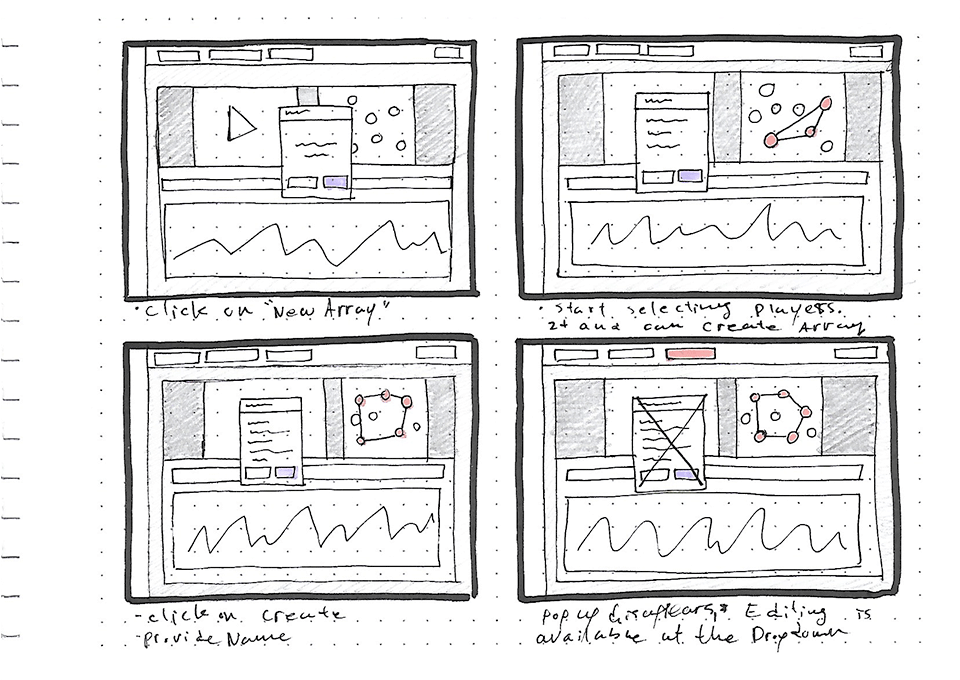 · Click on "New Array"
· Start selecting Players.
2+ and can Create Array
- click on Create
- Provide Name
Pop up disappears* Editing is
available at the Dropdown